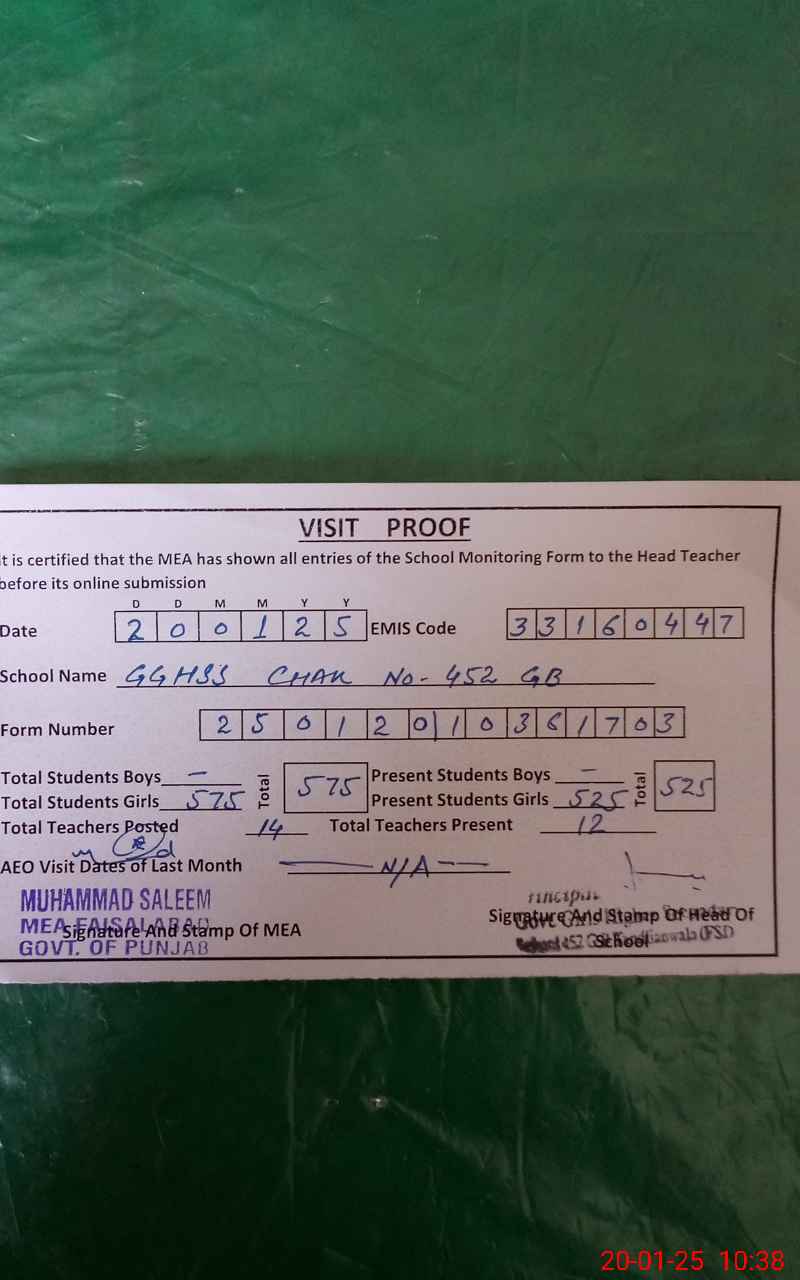 VISIT PROOF
t is certified that the MEA has shown all entries of the School Monitoring Form to the Head Teacher
before its online submission
D D M M Y Y
Date 2 0 0 1 2 5 EMIS Code 3 3 1 6 0 4 4 7
School Name GGHSS CHAK No- 452 GB
Form Number 2 5 0 1 2 0 1 0 3 6 1 7 0 3
Total Students Boys — Total 575 Present Students Boys — Total 525
Total Students Girls 575 Present Students Girls 525
Total Teachers Posted 14 Total Teachers Present 12
AEO Visit Dates of Last Month — N/A —
MUHAMMAD SALEEM
MEA FAISALABAD
GOVT. OF PUNJAB
Signature And Stamp Of MEA
Signature And Stamp Of Head Of
School
20-01-25 10:38